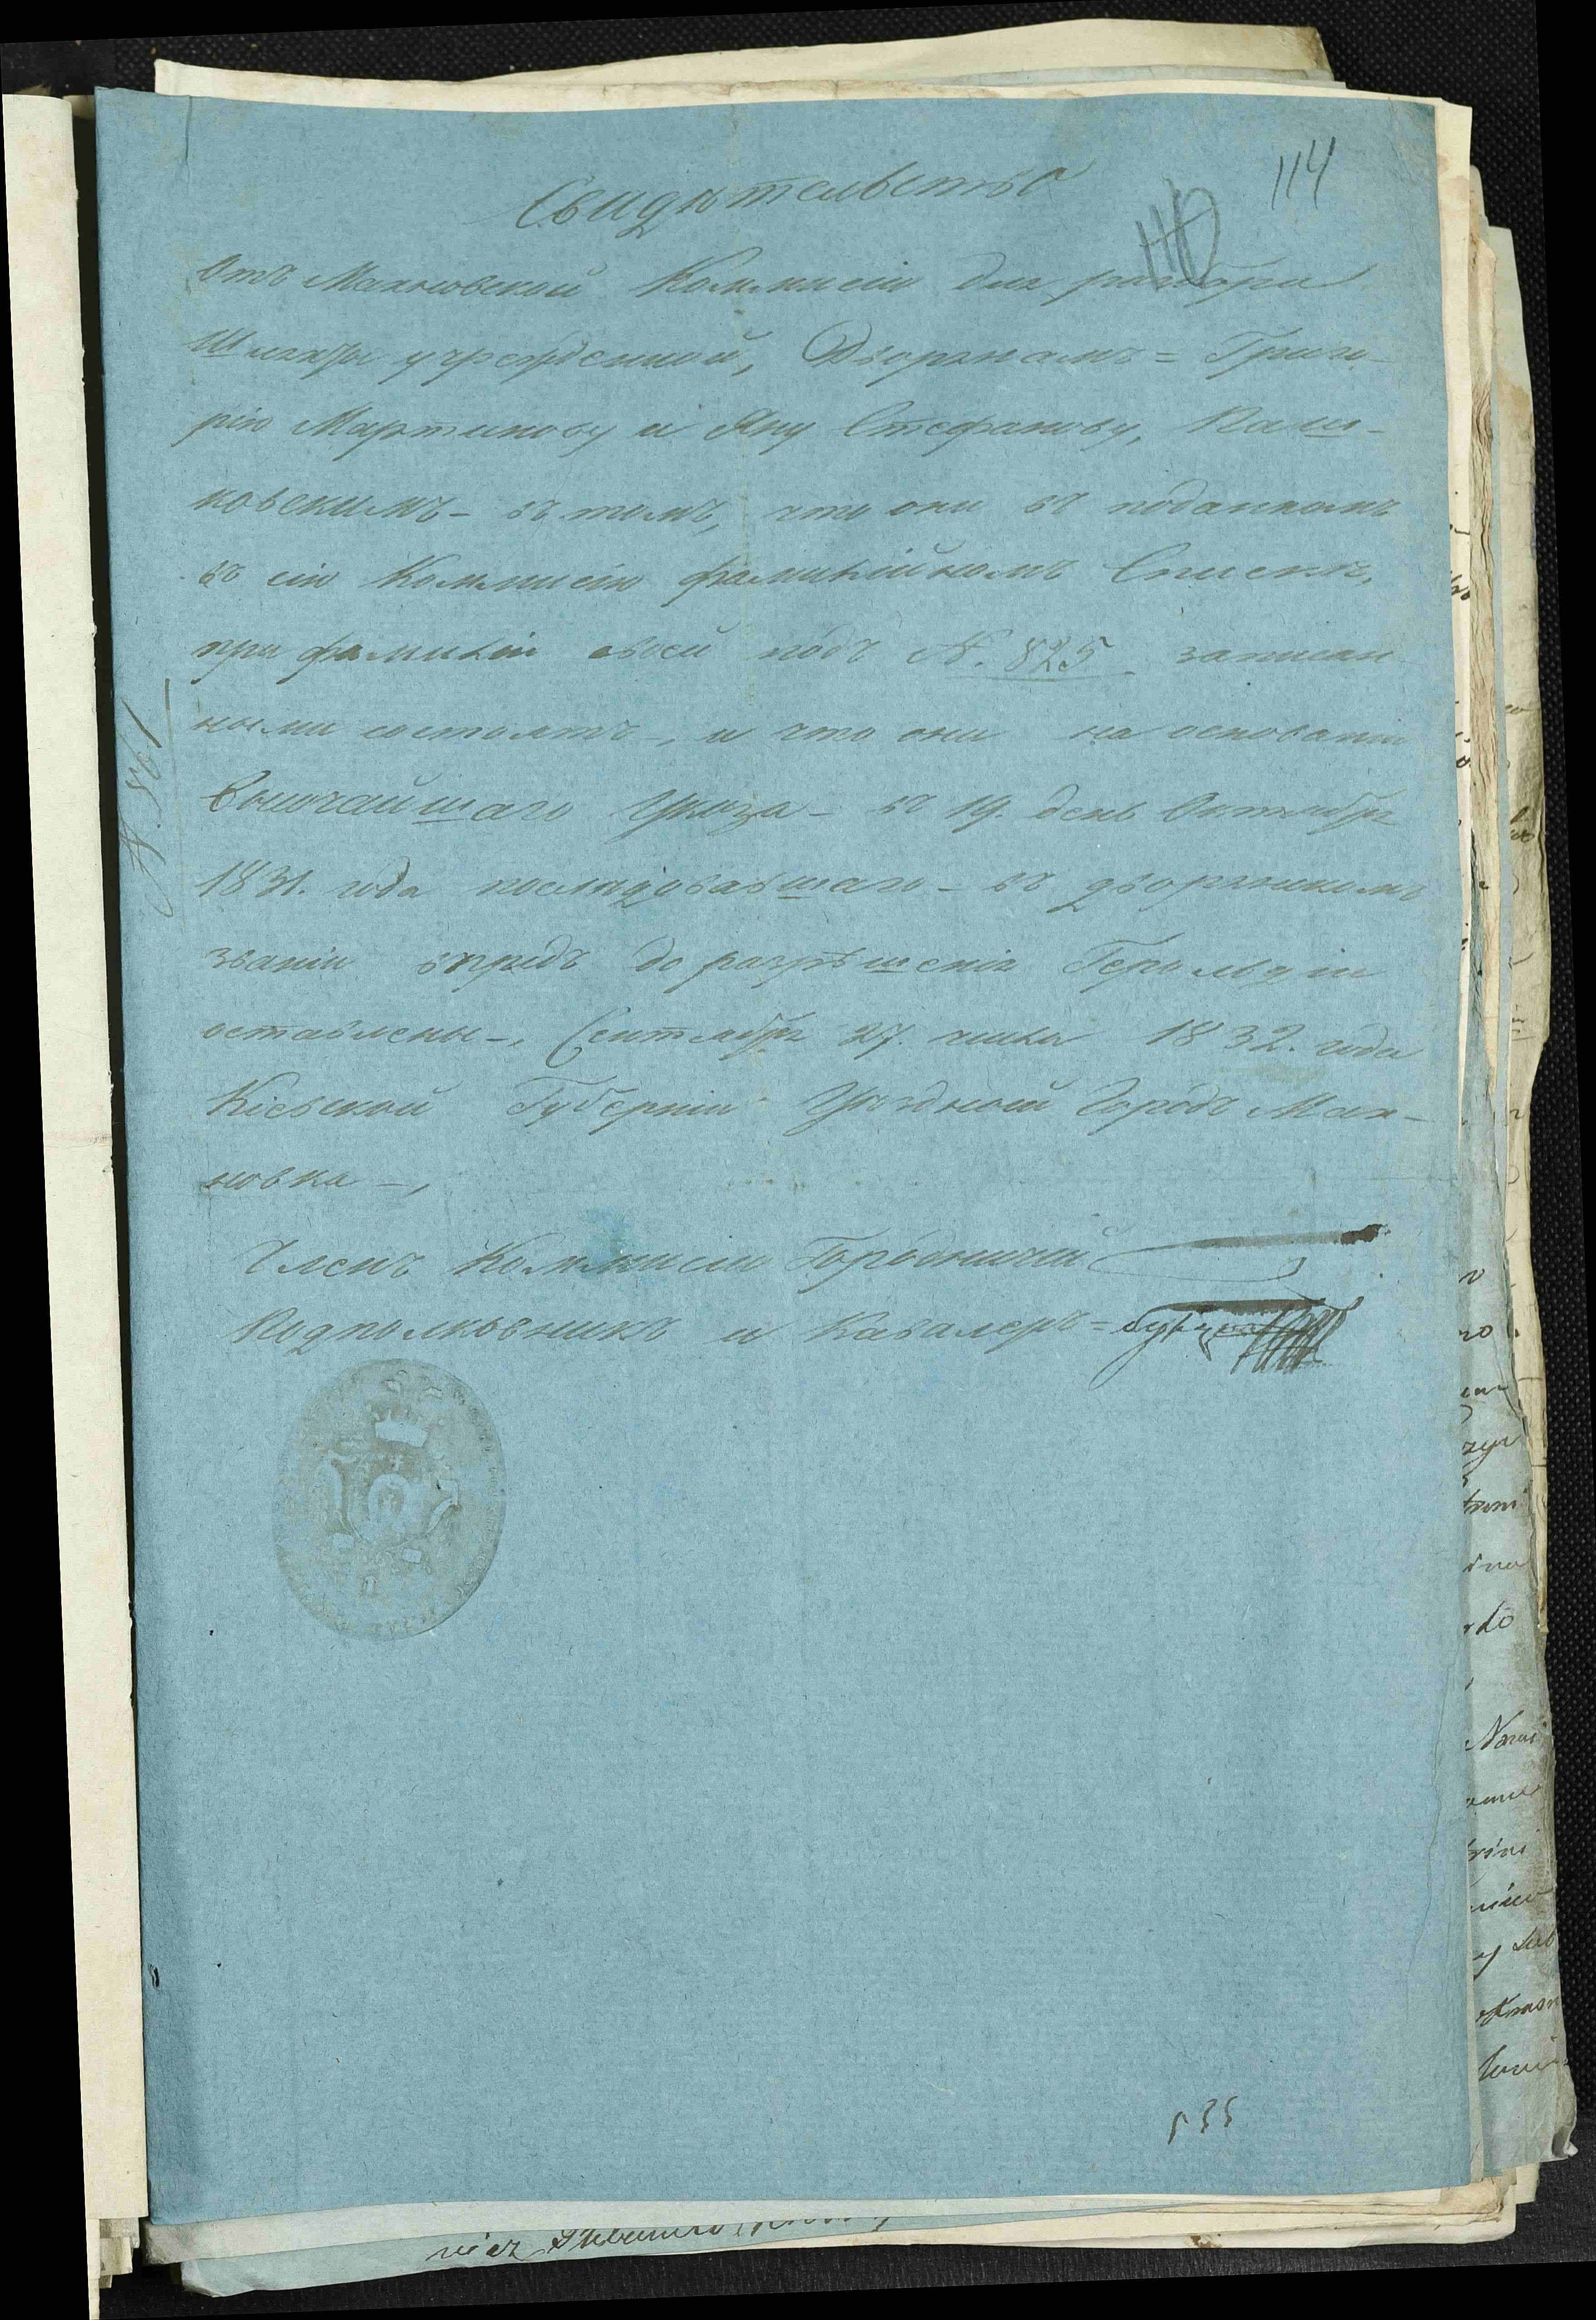 114
Свидѣтельство
Отъ Махновской Коммисіи для разбора
Шляхты учрежденной, Дворянамъ = Григо-
рію Мартинову и Яну Стефанову, Паш-
ковскимъ - въ томъ, что они въ поданномъ
въ сію Коммисію фамилійномъ Спискѣ,
при фамиліи своей подъ N. 825 записан
ными состоятъ -, и что они на основаніи
Высочайшаго Указа - въ 19. день Октября
1831. года послѣдовавшаго - въ дворянскомъ
званіи впредь до разрѣшенія Герольдіи
оставлены -, Сентября 27. числа 1832. года
Кіевской Губерніи Уѣздной Городъ Мах-
новка -,
Членъ Коммисіи Городничій
Подполковникъ и Кавалеръ =
N. 5861
535